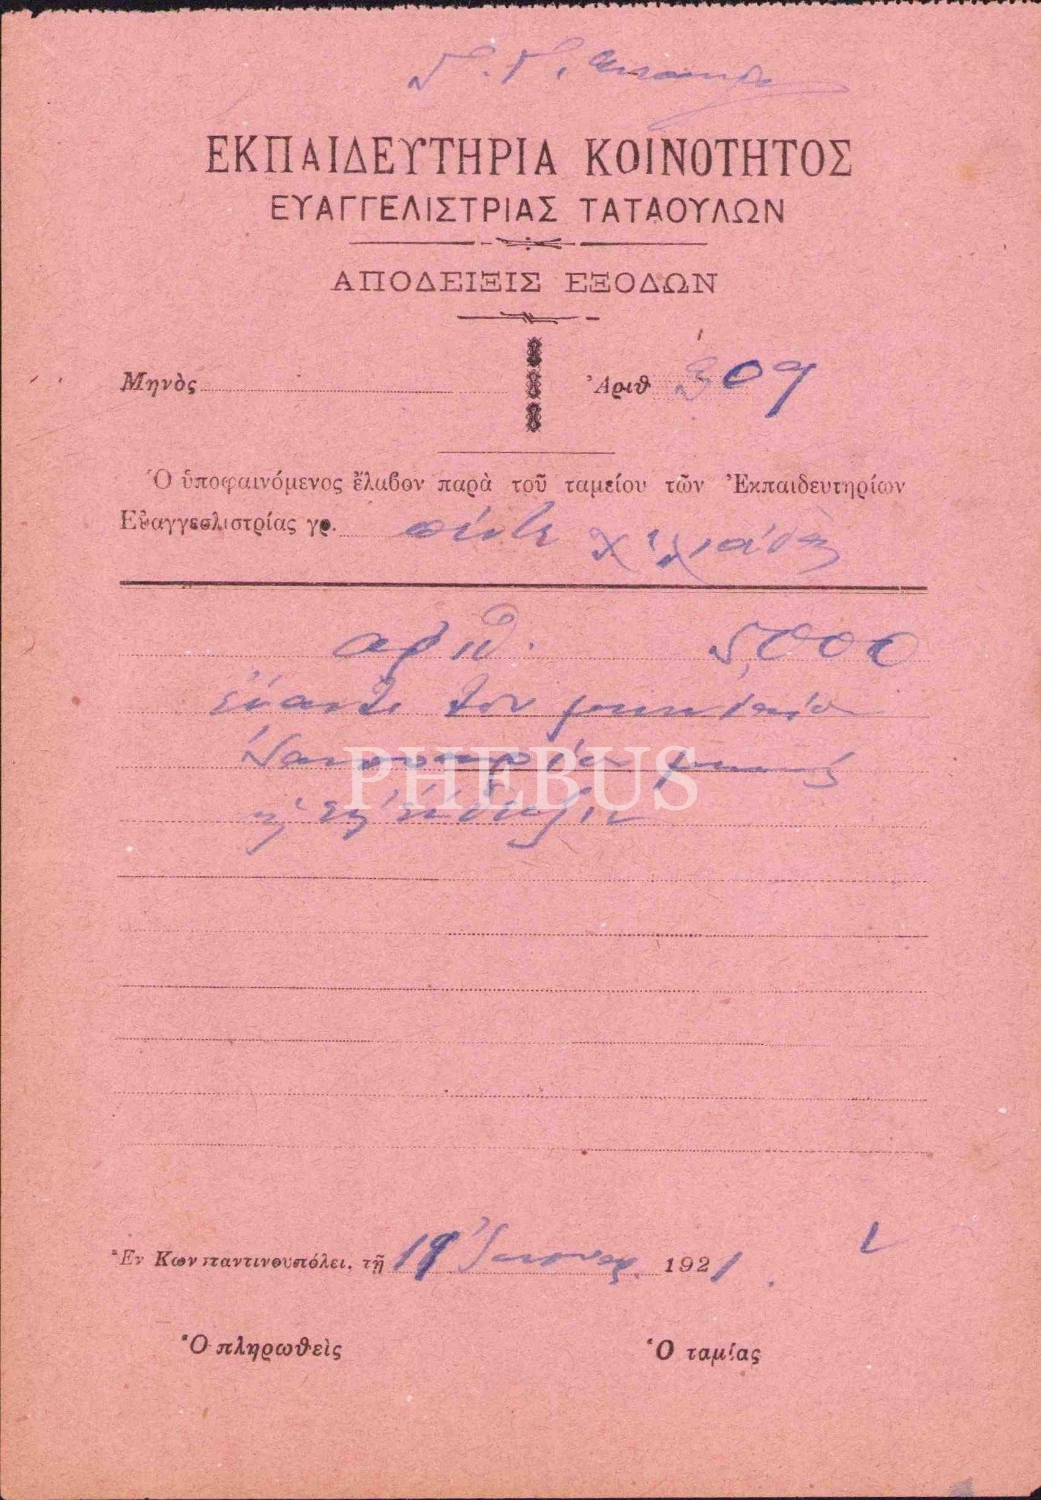 ΕΚΠΑΙΔΕΥΤΗΡΙΑ ΚΟΙΝΟΤΗΤΟΣ
ΕΥΑΓΓΕΛΙΣΤΡΙΑΣ ΤΑΤΑΟΥΛΩΝ
ΑΠΟΔΕΙΞΙΣ ΕΞΟΔΩΝ
Μηνὸς Ἀριθ 309
Ὁ ὑποφαινόμενος ἔλαβον παρὰ τοῦ ταμείου τῶν Ἐκπαιδευτηρίων
Εὐαγγελιστρίας γρ. πέντε χιλιάδας
αριθ. 5,000
ἔναντι των
PHEBUS
Ἐν Κωνσταντινουπόλει, τῇ 19 Ἰανουαρ. 1921.
Ὁ πληρωθεὶς Ὁ ταμίας